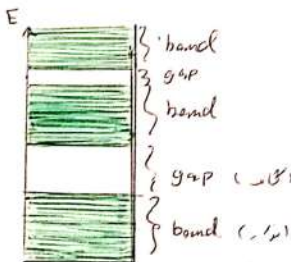 E
band
gap
band
gap
band